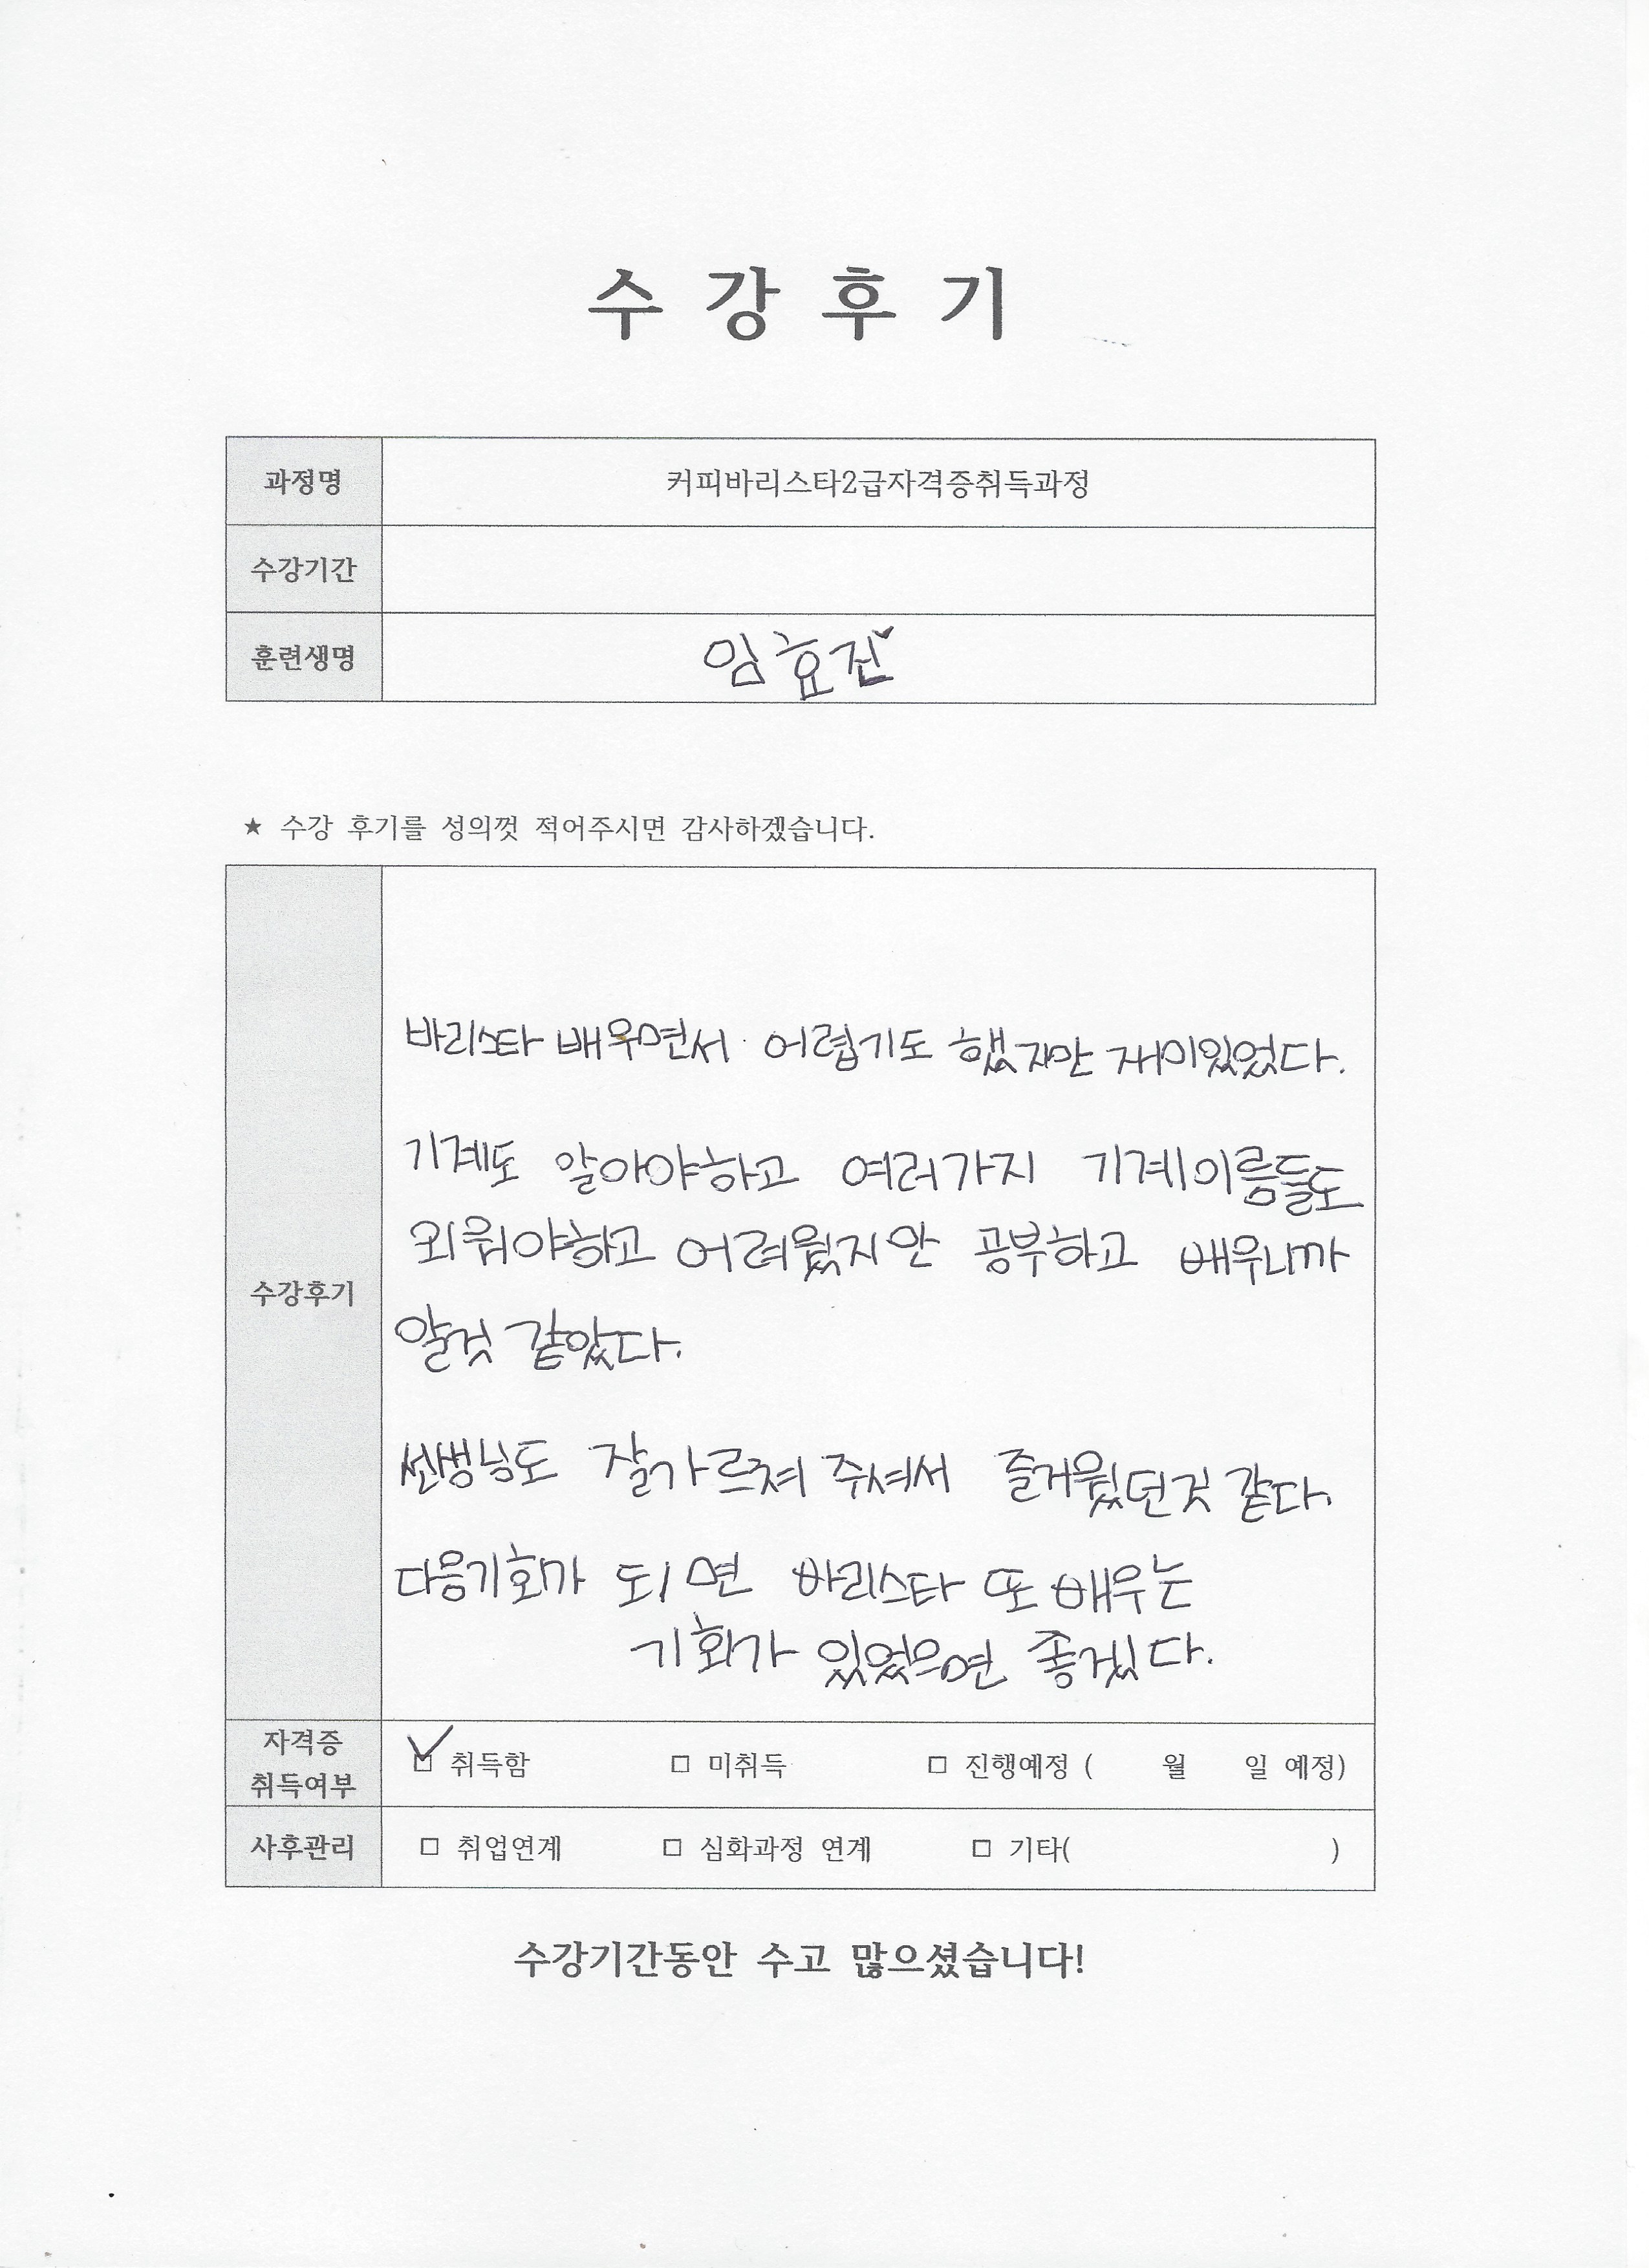 수 강 후 기
과정명 커피바리스타2급자격증취득과정
수강기간
훈련생명 임효진
★ 수강 후기를 성의껏 적어주시면 감사하겠습니다.
바리스타 배우면서 어렵기도 했지만 재미있었다.
기계도 알아야하고 여러가지 기계이름들도
외워야하고 어려웠지만 공부하고 배우니까
수강후기
알것 같았다.
선생님도 잘가르쳐 주셔서 즐거웠던것 같다.
다음기회가 되면 바리스타 또 배우는
기회가 있었으면 좋겠다.
자격증
취득여부 ☑ 취득함 □ 미취득 □ 진행예정 ( 월 일 예정)
사후관리 □ 취업연계 □ 심화과정 연계 □ 기타( )
수강기간동안 수고 많으셨습니다!